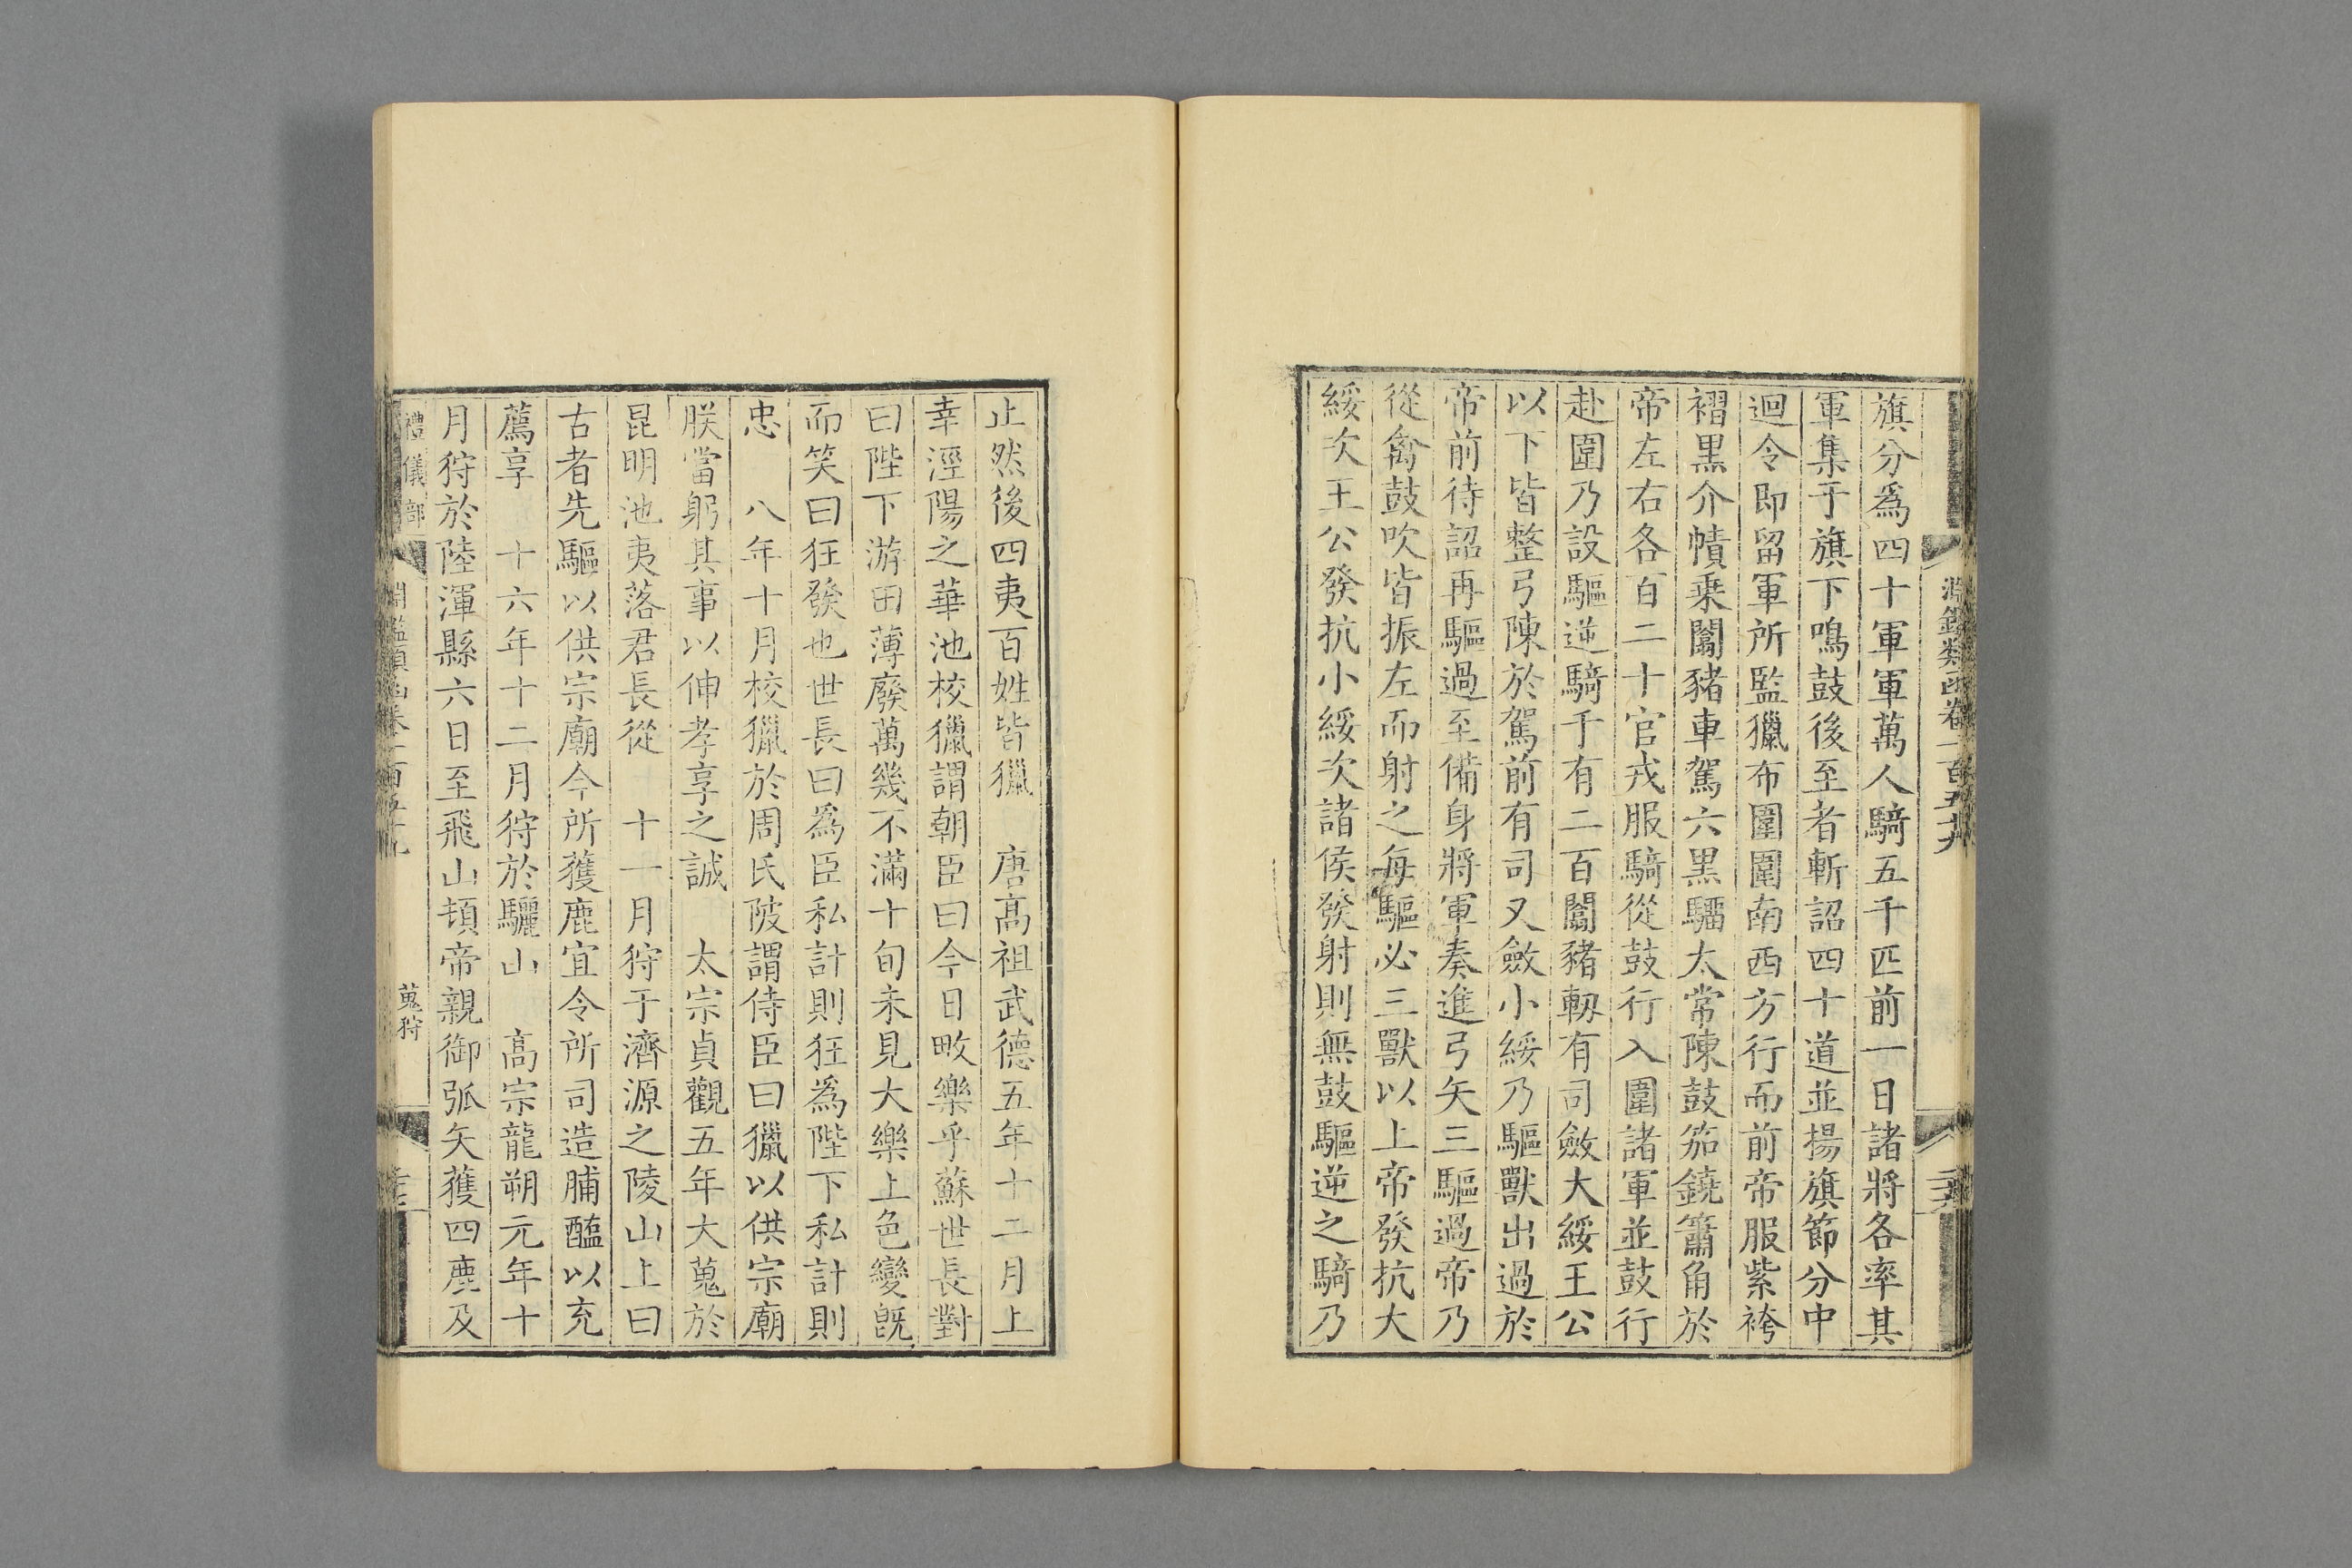 淵鑑類函卷一百五十九
二十六
旗分爲四十軍軍萬人騎五千匹前一日諸將各率其
軍集于旗下鳴鼓後至者斬詔四十道並揚旗節分中
迴令即留軍所監獵布圍圍南西方行而前帝服紫袴
褶黑介幘乗闟豬車駕六黑騮太常陳鼓笳鐃簫角於
帝左右各百二十官戎服騎從鼓行入圍諸軍並鼓行
赴圍乃設驅逆騎千有二百闟豬軔有司斂大綏王公
以下皆整弓陳於駕前有司又斂小綏乃驅獸出過於
帝前待詔再驅過至備身將軍奏進弓矢三驅過帝乃
從禽鼓吹皆振左而射之每驅必三獸以上帝發抗大
綏次王公發抗小綏次諸侯發射則無鼓驅逆之騎乃
止然後四夷百姓皆獵　唐高祖武德五年十二月上
幸涇陽之華池校獵謂朝臣曰今日畋樂乎蘇世長對
曰陛下游田薄廢萬幾不滿十旬未見大樂上色變旣
而笑曰狂發也世長曰爲臣私計則狂爲陛下私計則
忠　八年十月校獵於周氏陂謂侍臣曰獵以供宗廟
朕當躬其事以伸孝享之誠　太宗貞觀五年大蒐於
昆明池夷落君長從　十一月狩于濟源之陵山上曰
古者先驅以供宗廟今所獲鹿宜令所司造脯醢以充
薦享　十六年十二月狩於驪山　高宗龍朔元年十
月狩於陸渾縣六日至飛山頓帝親御弧矢獲四鹿及
禮儀部
淵鑑類函卷一百五十九
蒐狩